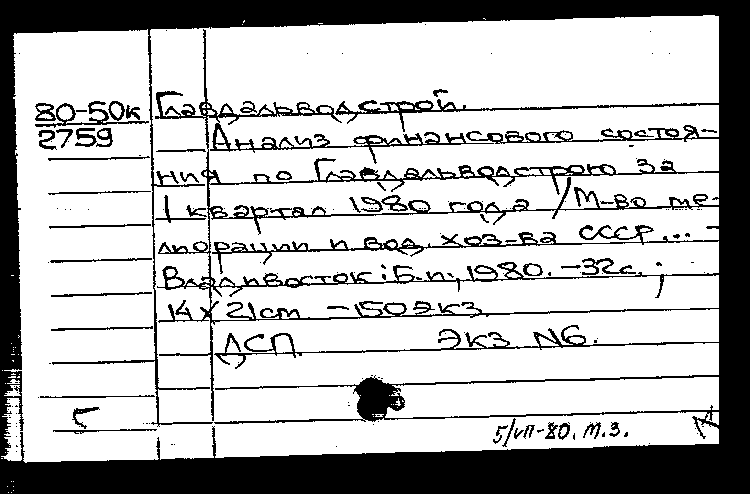 80-50к Главдальводстрой.
2759 Анализ финансового состоя-
ния по Главдальводстрою за
I квартал 1980 года / М-во ме-
лиорации и вод. хоз-ва СССР... -
Владивосток: Б.и., 1980. - 32 с.;
14 х 21 cm. - 150 экз.
ДСП. Экз N6.
5/VII-80. м.з.